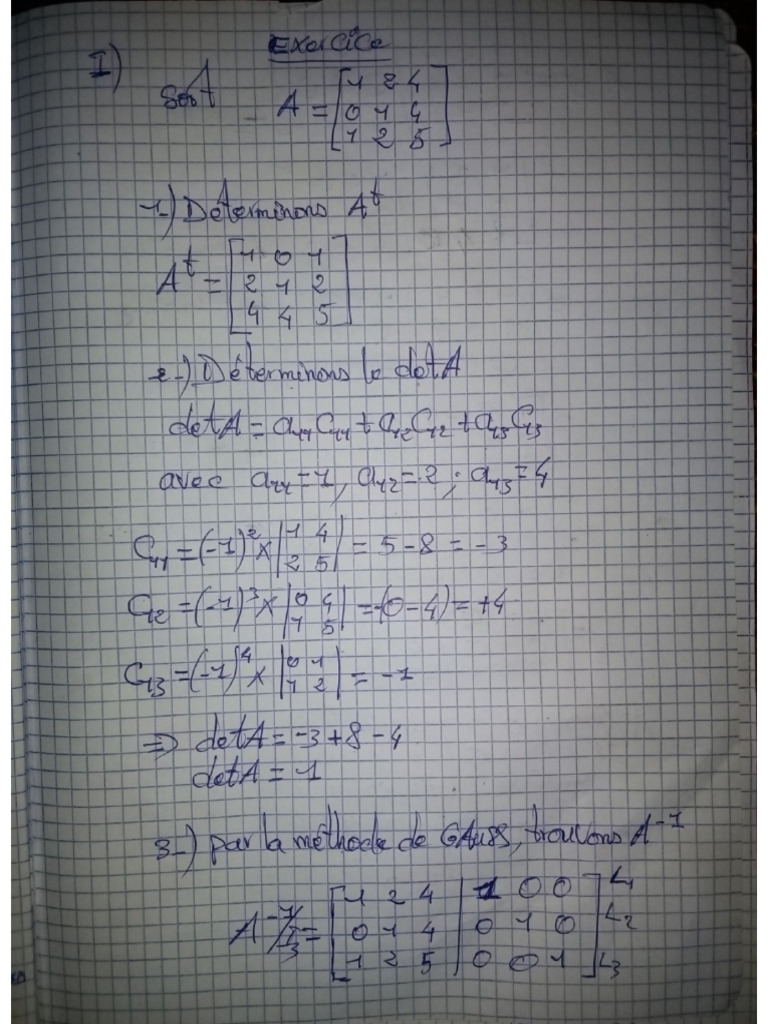 Exercice
I)
Soit A = [1 2 4
0 1 4
1 2 5]
1-) Déterminons A^t
A^t = [1 0 1
2 1 2
4 4 5]
2-) Déterminons le detA
detA = a₁₁C₁₁ + a₁₂C₁₂ + a₁₃C₁₃
avec a₁₁ = 1, a₁₂ = 2 ; a₁₃ = 4
C₁₁ = (-1)² × |1 4
2 5| = 5 - 8 = -3
C₁₂ = (-1)³ × |0 4
1 5| = -(0 - 4) = +4
C₁₃ = (-1)⁴ × |0 1
1 2| = -1
⇒ detA = -3 + 8 - 4
detA = 1
3-) par la méthode de GAUSS, trouvons A⁻¹
A⁻¹/I₃ = [1 2 4 | 1 0 0] L₁
0 1 4 | 0 1 0 L₂
1 2 5 | 0 0 1 L₃